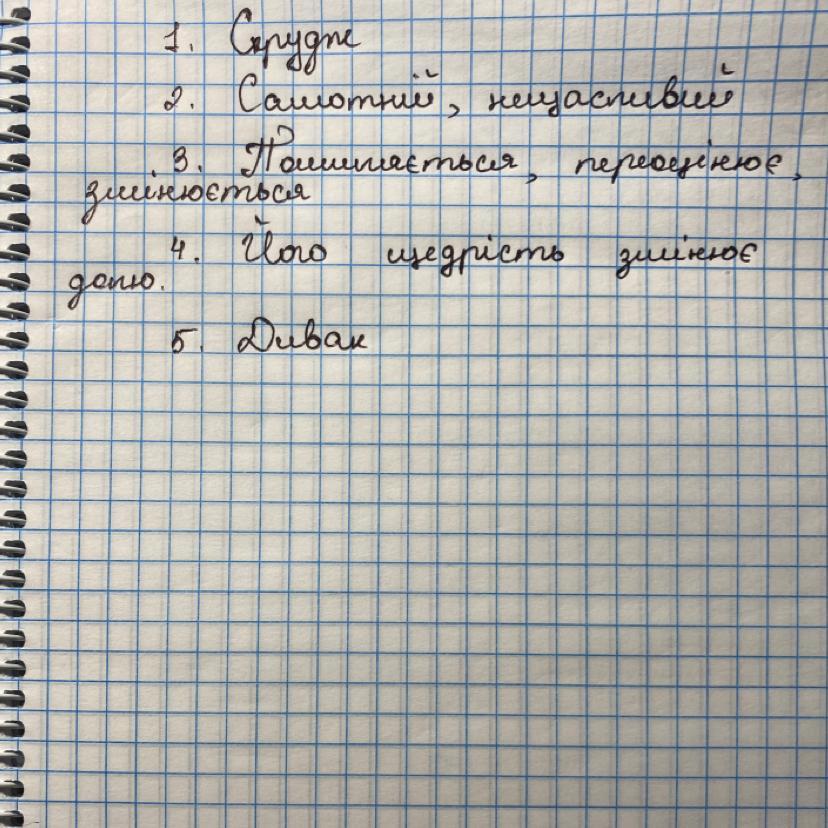 1. Скрудж
2. Самотній, нещасливий
3. Помиляється, переоцінює,
змінюється
4. Його щедрість змінює
долю.
5. Дивак